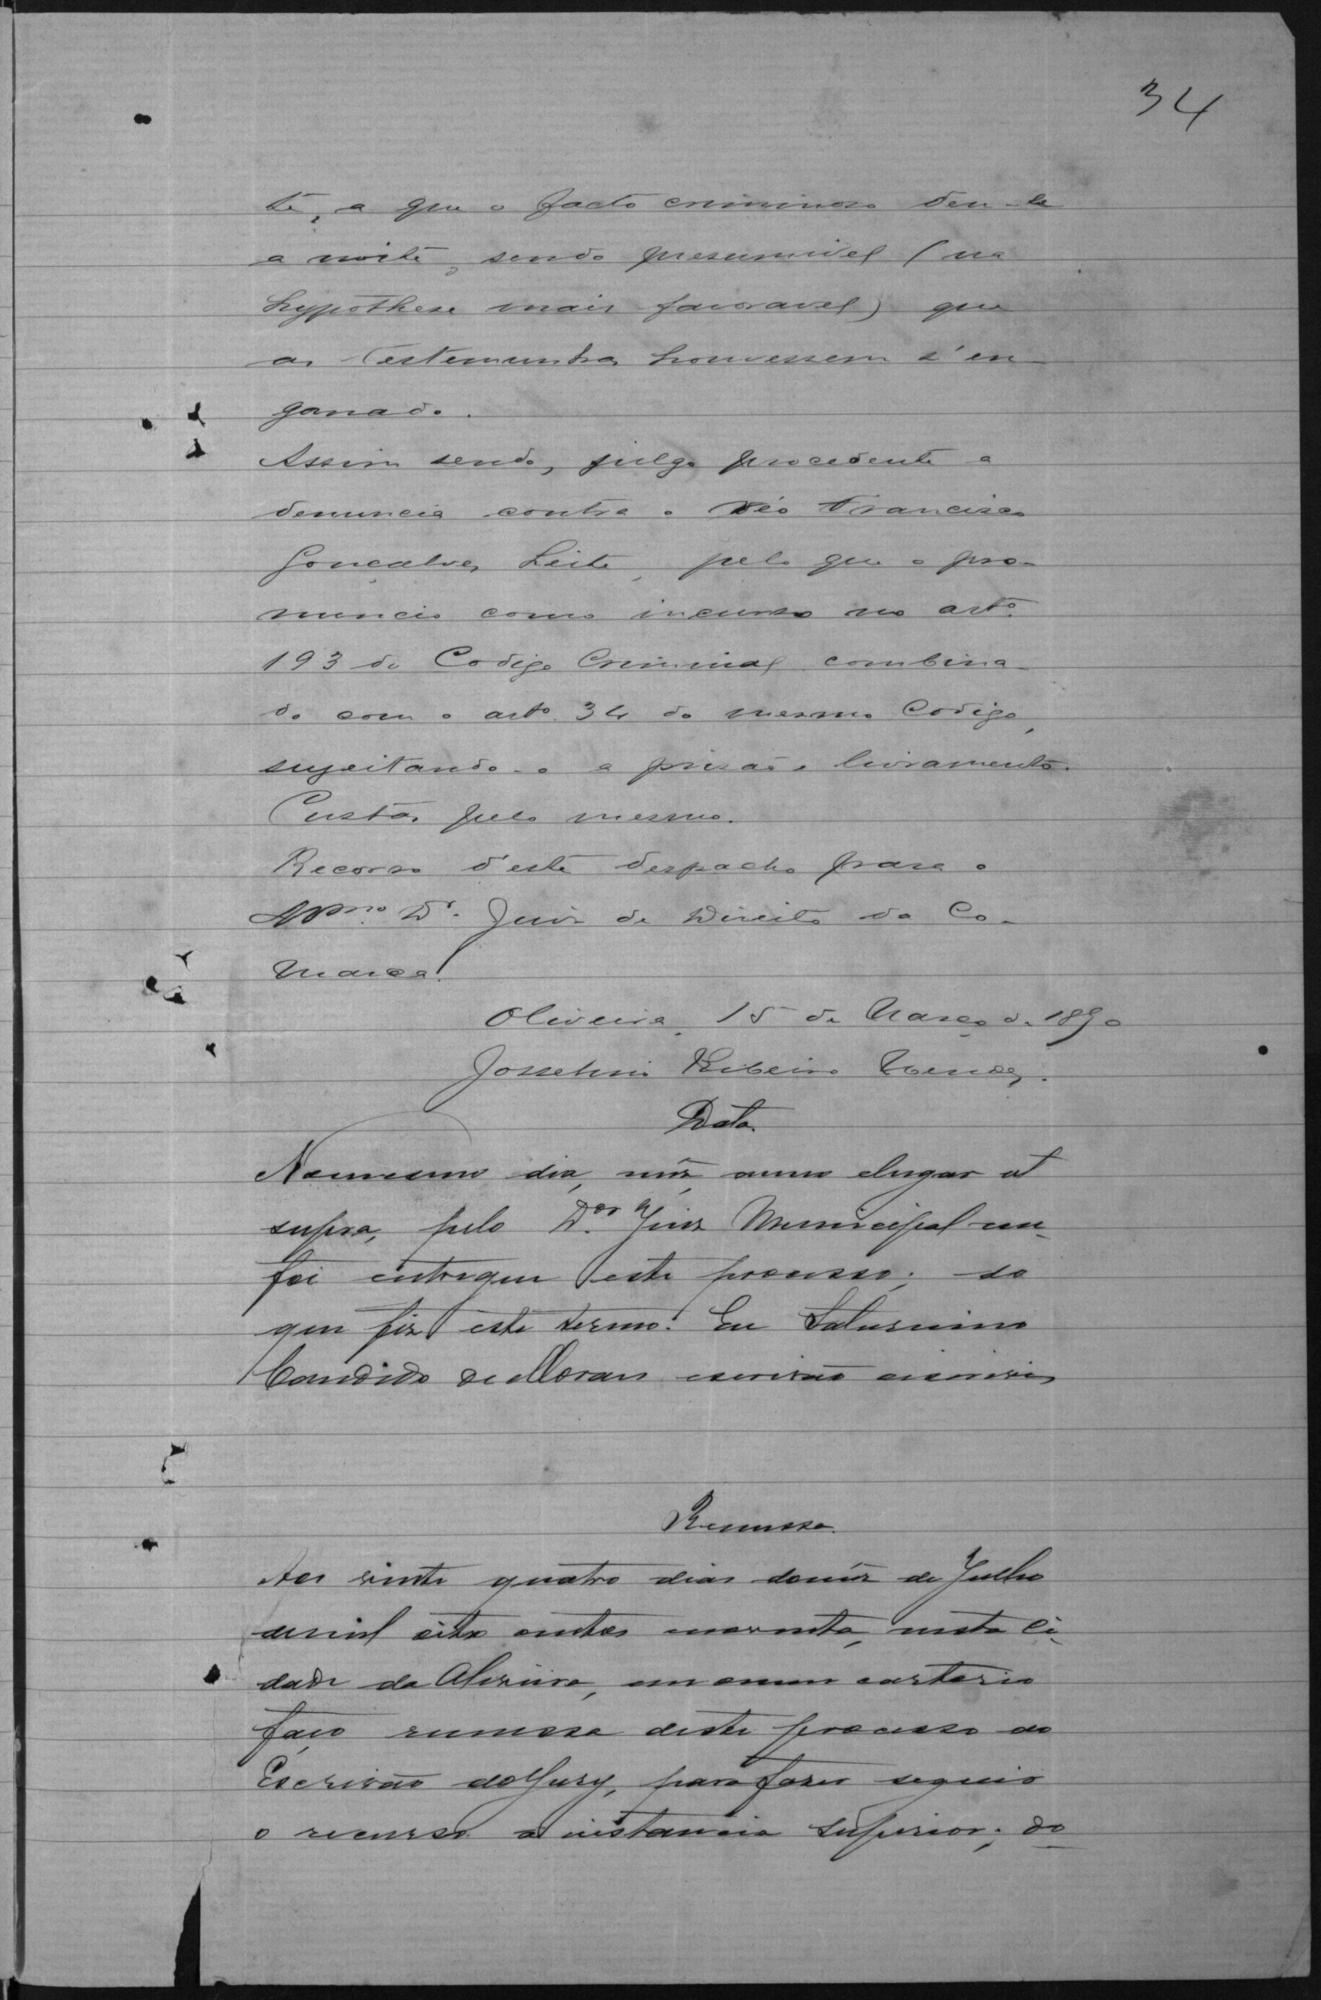 34
te, a que o facto criminoso deu-se
a noite, sendo presumivel (na
hypothese mais favoravel) que
as testemunhas houvessem s'en-
ganado.
Assim sendo, julgo procedente a
denuncia contra o réo Francisco
Gonçalves Leite, pelo que o pro-
nuncio como incurso no artº
193 do Codigo Criminal combina-
do com o artº 34 do mesmo Codigo,
sujeitando-o a prisão e livramento.
Custas pelo mesmo.
Recorro d'este despacho para o
Dr. Juiz de Direito da Co-
marca.
Oliveira, 15 de Março de 1890
Josselini Ribeiro Mendes.
Data
No mesmo dia, mêz, anno e lugar ut
supra, pelo Dor Juiz Municipal me
foi entregue este processo; do
que fiz este termo. Eu Saturnino
Candido de Moraes escrivão escrivi
Remessa
Aos vinte quatro dias do mêz de Julho
de mil oito centos e noventa, nesta Ci-
dade da Oliveira, em o meu cartorio
faço remessa deste processo ao
Escrivão do Jury, para fazer seguir
o recurso a instancia superior; do